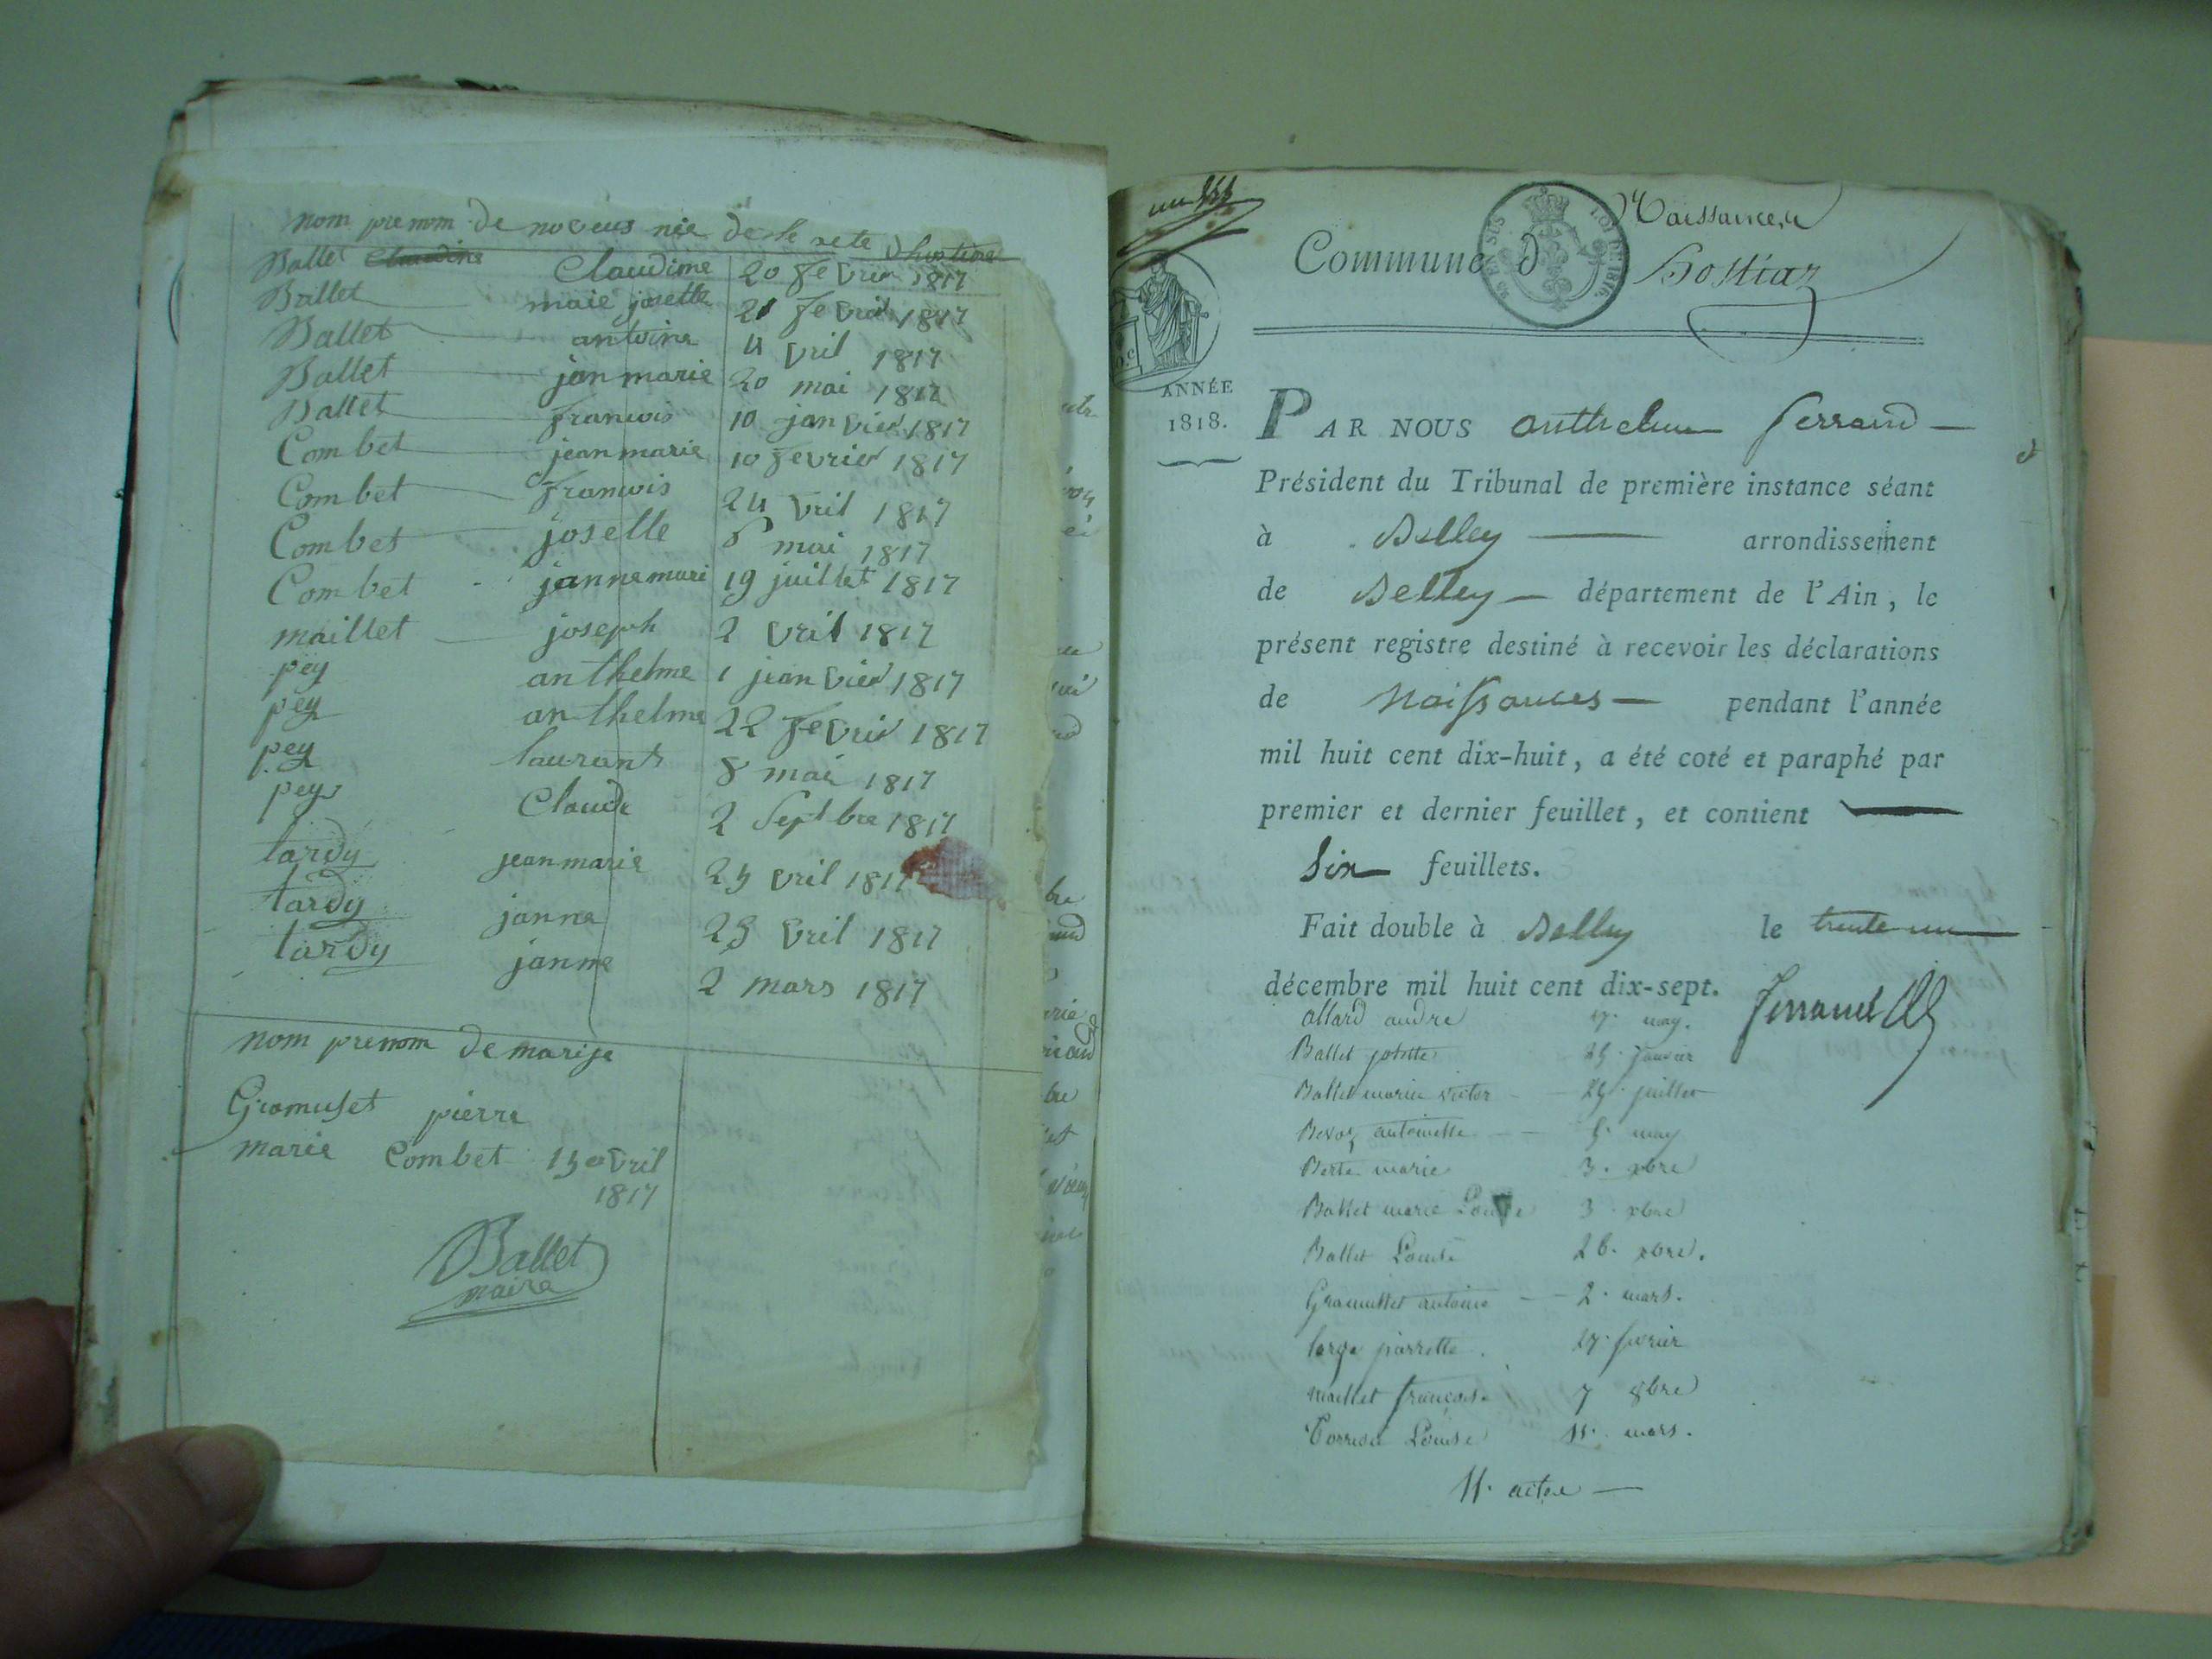 nom prenom de noveus nee
Ballet Claudine Claudime 20 fevrier 1817
Ballet maie josette 21 fevrie 1817
Ballet antoine 4 vril 1817
Ballet jan marie 20 mai 1817
Ballet francois 10 janvier 1817
Combet jean marie 10 fevrier 1817
Combet francois 24 vril 1817
Combet josette 8 mai 1817
Combet janne mari 19 juillet 1817
maillet joseph 2 vril 1817
pey anthelme 1 jeanvier 1817
pey anthelme 22 fevrie 1817
pey laurant 8 mai 1817
pey Claude 2 Septbre 1817
tardy jean marie 25 vril 1817
tardy janne 25 vril 1817
tardy janne 2 mars 1817
nom prenom de marije
Gramuset pierre
marie Combet 15 avril
1817
Ballet
maire
Naissances
Commune d' hostiaz
25 EN SUS
LOI DE 1816.
ANNÉE
1818.
PAR NOUS anthelme ferrand
Président du Tribunal de première instance séant
à Belley arrondissement
de Belley département de l'Ain, le
présent registre destiné à recevoir les déclarations
de Naissances pendant l'année
mil huit cent dix-huit, a été coté et paraphé par
premier et dernier feuillet, et contient
Six feuillets.
Fait double à Belley le trente un
décembre mil huit cent dix-sept. ferrand
allard andre 17. may.
Ballet josette 25. janvier
Ballet marie victor 25. juillet
antoinette 5. may
Berte marie 3. xbre
Ballet marie Louise 3. xbre
Ballet Louise 26. xbre.
Gramusset antoine 2. mars.
large pierrette 17. fevrier
maillet françois 7 8bre
Louise 11. mars.
11. actes